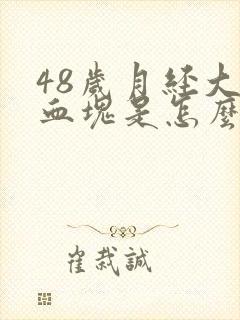 48歲月經大
血塊是怎麼
崔栽誠